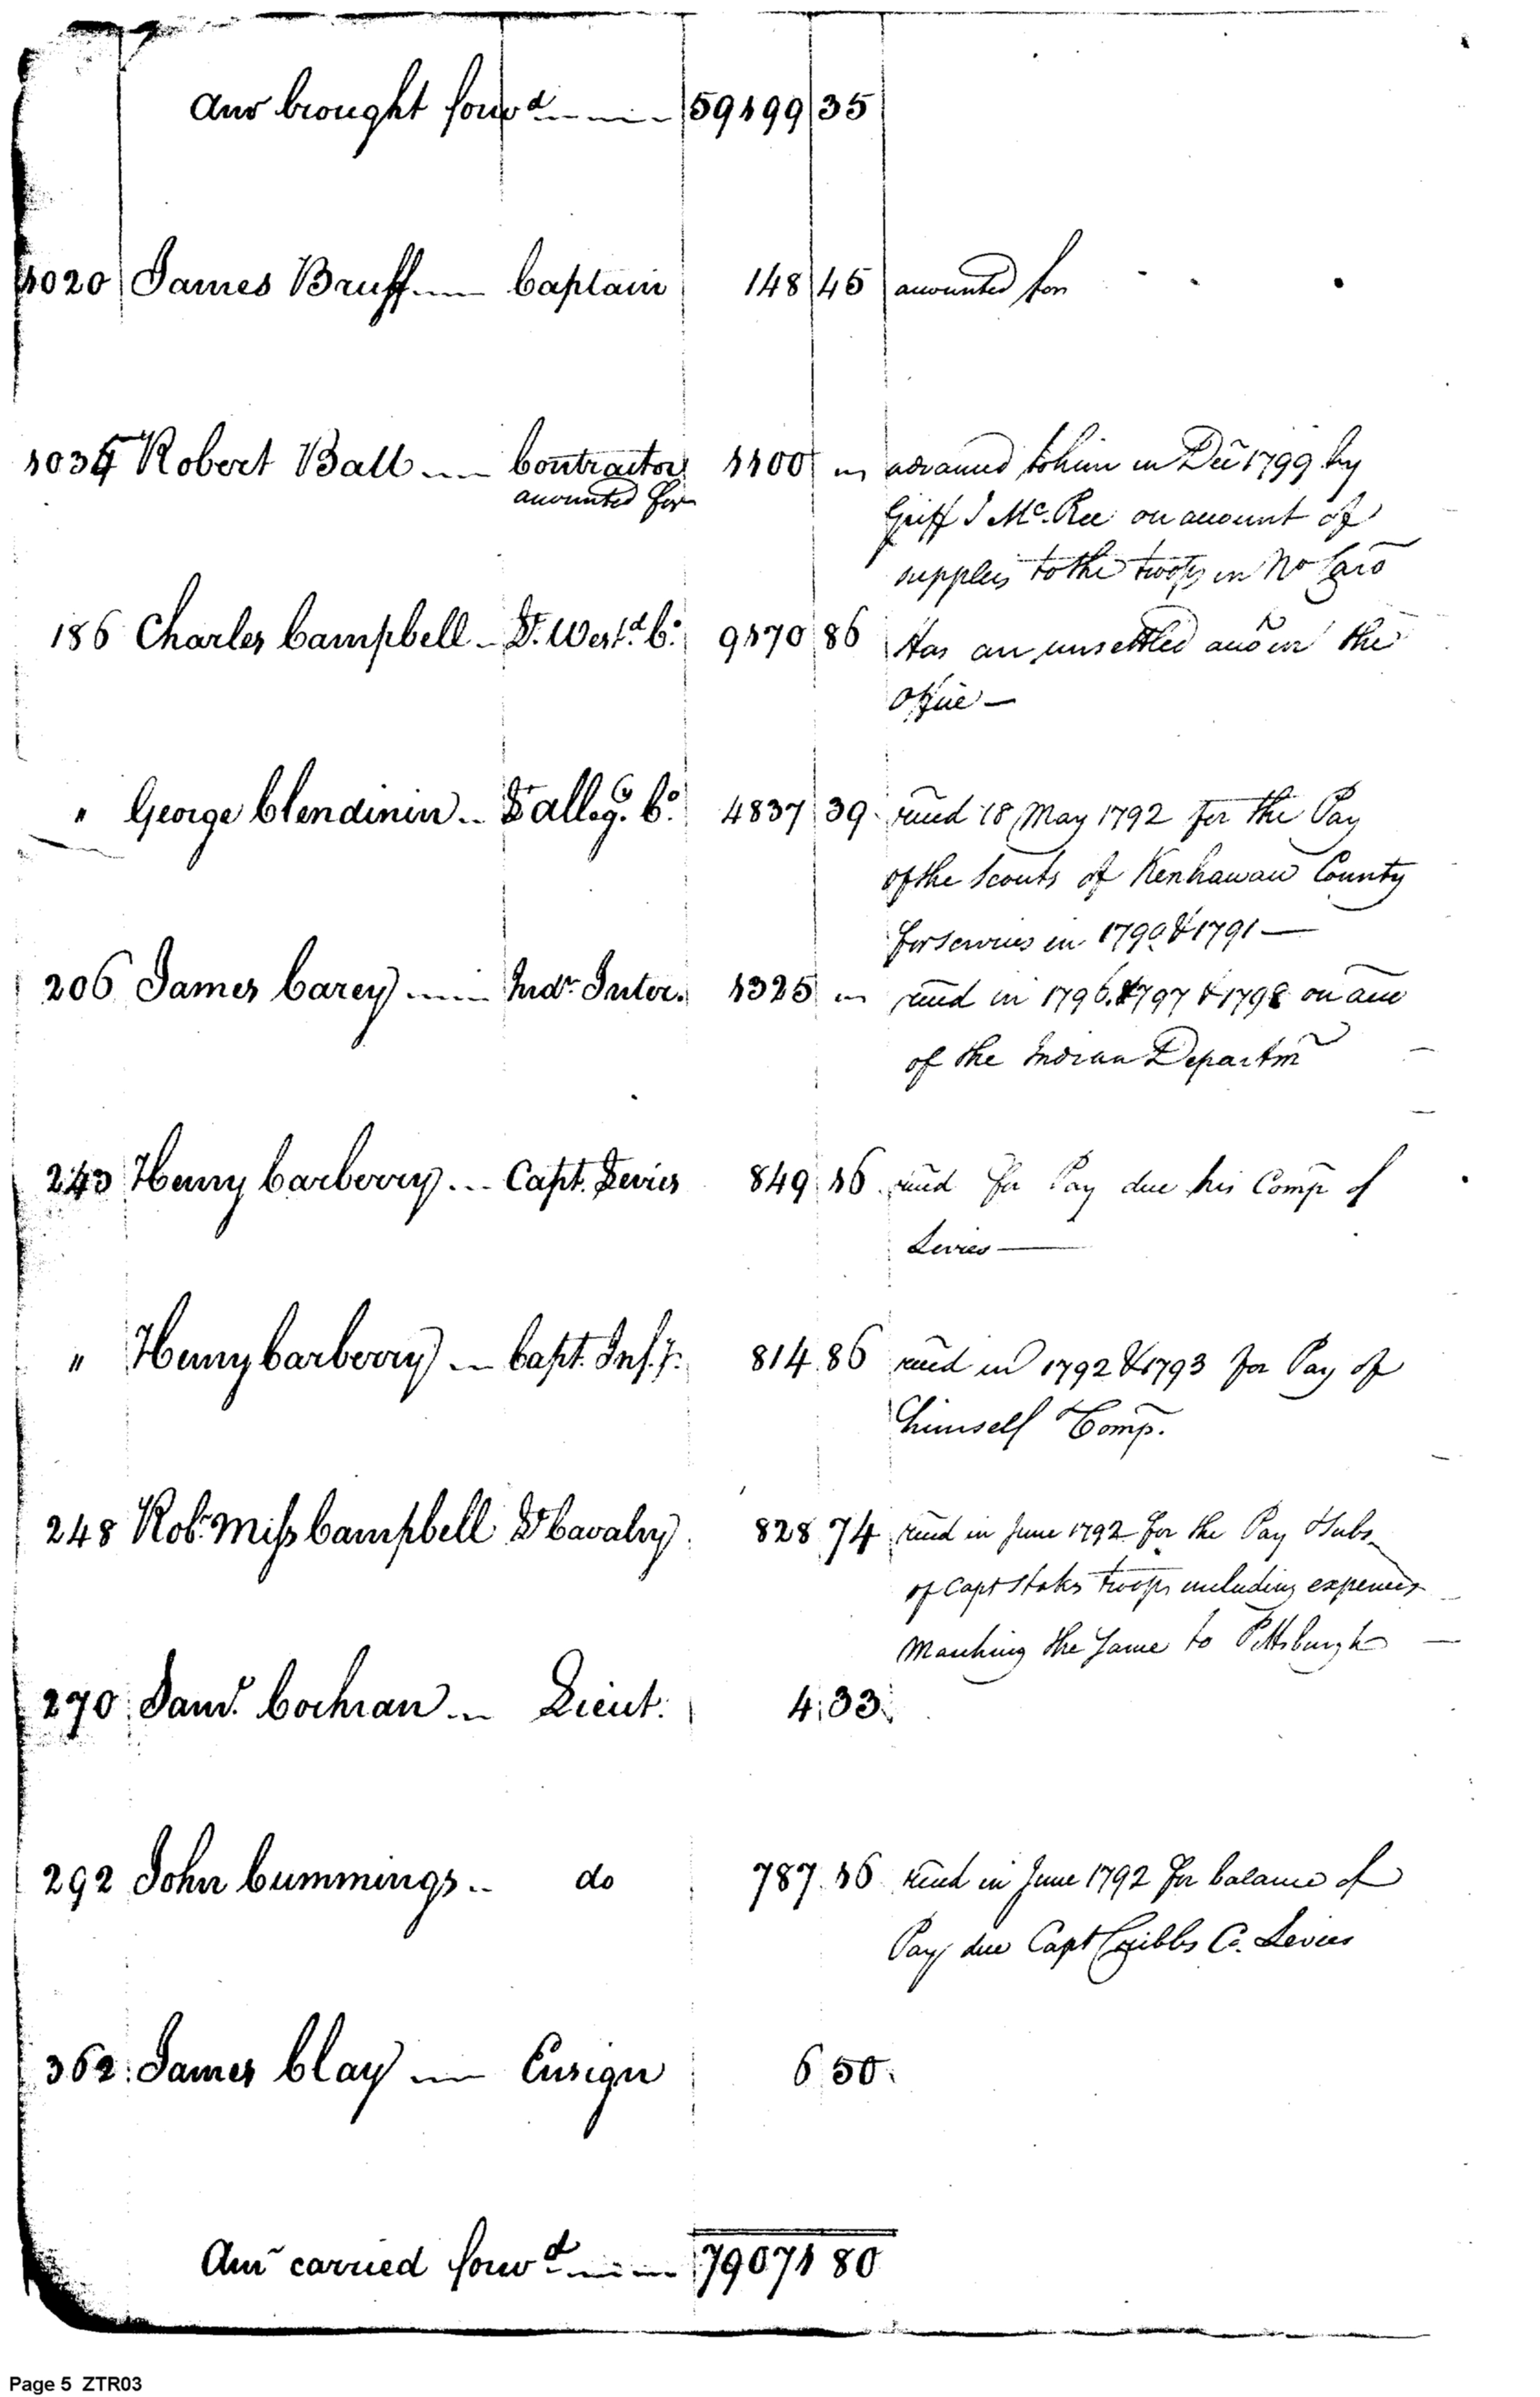 Amo brought forwd 59199 35
1020 James Bruff Captain 148 45 accounted for
1034 Robert Ball Contractor 1100 " advanced to him in Dec 1799 by
accounted for Griff J McRee on account of
supplies to the troops in No Caro
186 Charles Campbell Lt. Westd Co. 9170 86 Has an unsettled acco in the
Office —
" George Clendinin Lt Allegy. Co. 4837 39 recd 18 May 1792 for the Pay
of the Scouts of Kenhawau County
for services in 1790 & 1791 —
206 James Carey Indn Inter. 1325 " recd in 1796. 1797 & 1798 on acco
of the Indian Departm
243 Henry Carberry Capt. Levies 849 16 recd for Pay due his Comp of
Levies —
" Henry Carberry Capt. Infy. 814 86 recd in 1792 & 1793 for Pay of
himself & Comp.
248 Robt. Miss Campbell Lt Cavalry 828 74 recd in June 1792 for the Pay & Subs
of Capt Stakes troops including expences
marching the same to Pittsburgh
270 Saml. Cochran Lieut. 4 33
292 John Cummings do 787 16 recd in June 1792 for balance of
Pay due Capt Cribbs Co. Levies
362 James Clay Ensign 6 50
Amo carried forwd 79071 80
Page 5 ZTR03